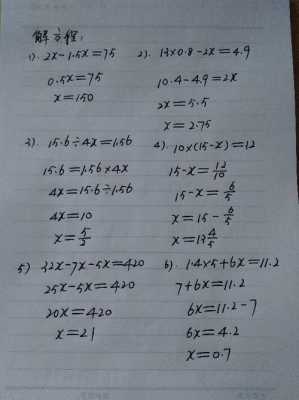 解方程:
1). 2x-1.5x=75
0.5x=75
x=150
2). 13×0.8-2x=4.9
10.4-4.9=2x
2x=5.5
x=2.75
3). 15.6÷4x=1.56
15.6=1.56×4x
4x=15.6÷1.56
4x=10
x=5/2
4). 10×(15-x)=12
15-x=12/10
15-x=6/5
x=15-6/5
x=13 4/5
5) 32x-7x-5x=420
25x-5x=420
20x=420
x=21
6). 1.4×5+6x=11.2
7+6x=11.2
6x=11.2-7
6x=4.2
x=0.7